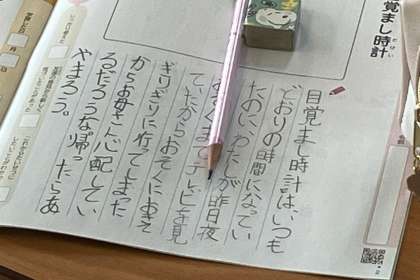 覚まし時計
とけい
目覚まし時計はいつも
どおりの時間になってい
たのに、わたしが昨日夜
おそくまでテレビを見
ていたからおそくにおきて
ぎりぎりに行ってしまった
からお母さん心配してい
るだろうな帰ったらあ
やまろう。
月
日